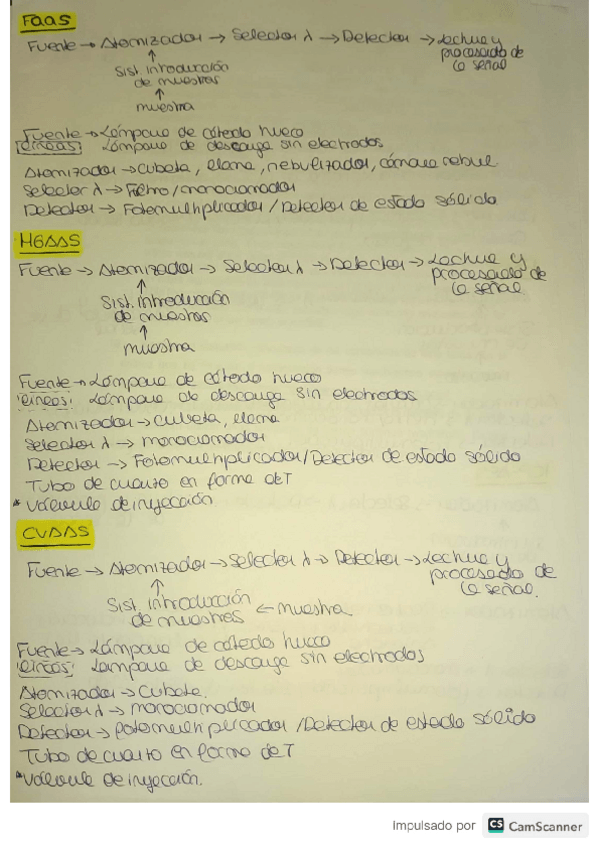 Faas
Fuente → Atomizador → Selector λ → Detector → Lectura y
procesado de
la señal
↑
Sist. introducción
de muestras
↑
muestra
Fuente → Lámpara de cátodo hueco
líneas Lámpara de descarga sin electrodos
Atomizador → Cubeta, llama, nebulizador, cámara nebul.
Selector λ → Filtro/monocromador
Detector → Fotomultiplicador / Detector de estado sólido
HGAAS
Fuente → Atomizador → Selector λ → Detector → Lectura y
procesado de
la señal
↑
Sist. introducción
de muestras
↑
muestra
Fuente → Lámpara de cátodo hueco
líneas: Lámpara de descarga sin electrodos
Atomizador → Cubeta, llama
Selector λ → monocromador
Detector → Fotomultiplicador/Detector de estado sólido
Tubo de cuarzo en forma de T
* Válvula de inyección
CVAAS
Fuente → Atomizador → Selector λ → Detector → Lectura y
procesado de
la señal.
↑
Sist. introducción ← muestra
de muestras
Fuente → Lámpara de cátodo hueco
líneas: Lámpara de descarga sin electrodos
Atomizador → Cubeta.
Selector λ → monocromador
Detector → fotomultiplicador /Detector de estado sólido
Tubo de cuarzo en forma de T
* Válvula de inyección.
Impulsado por CS CamScanner